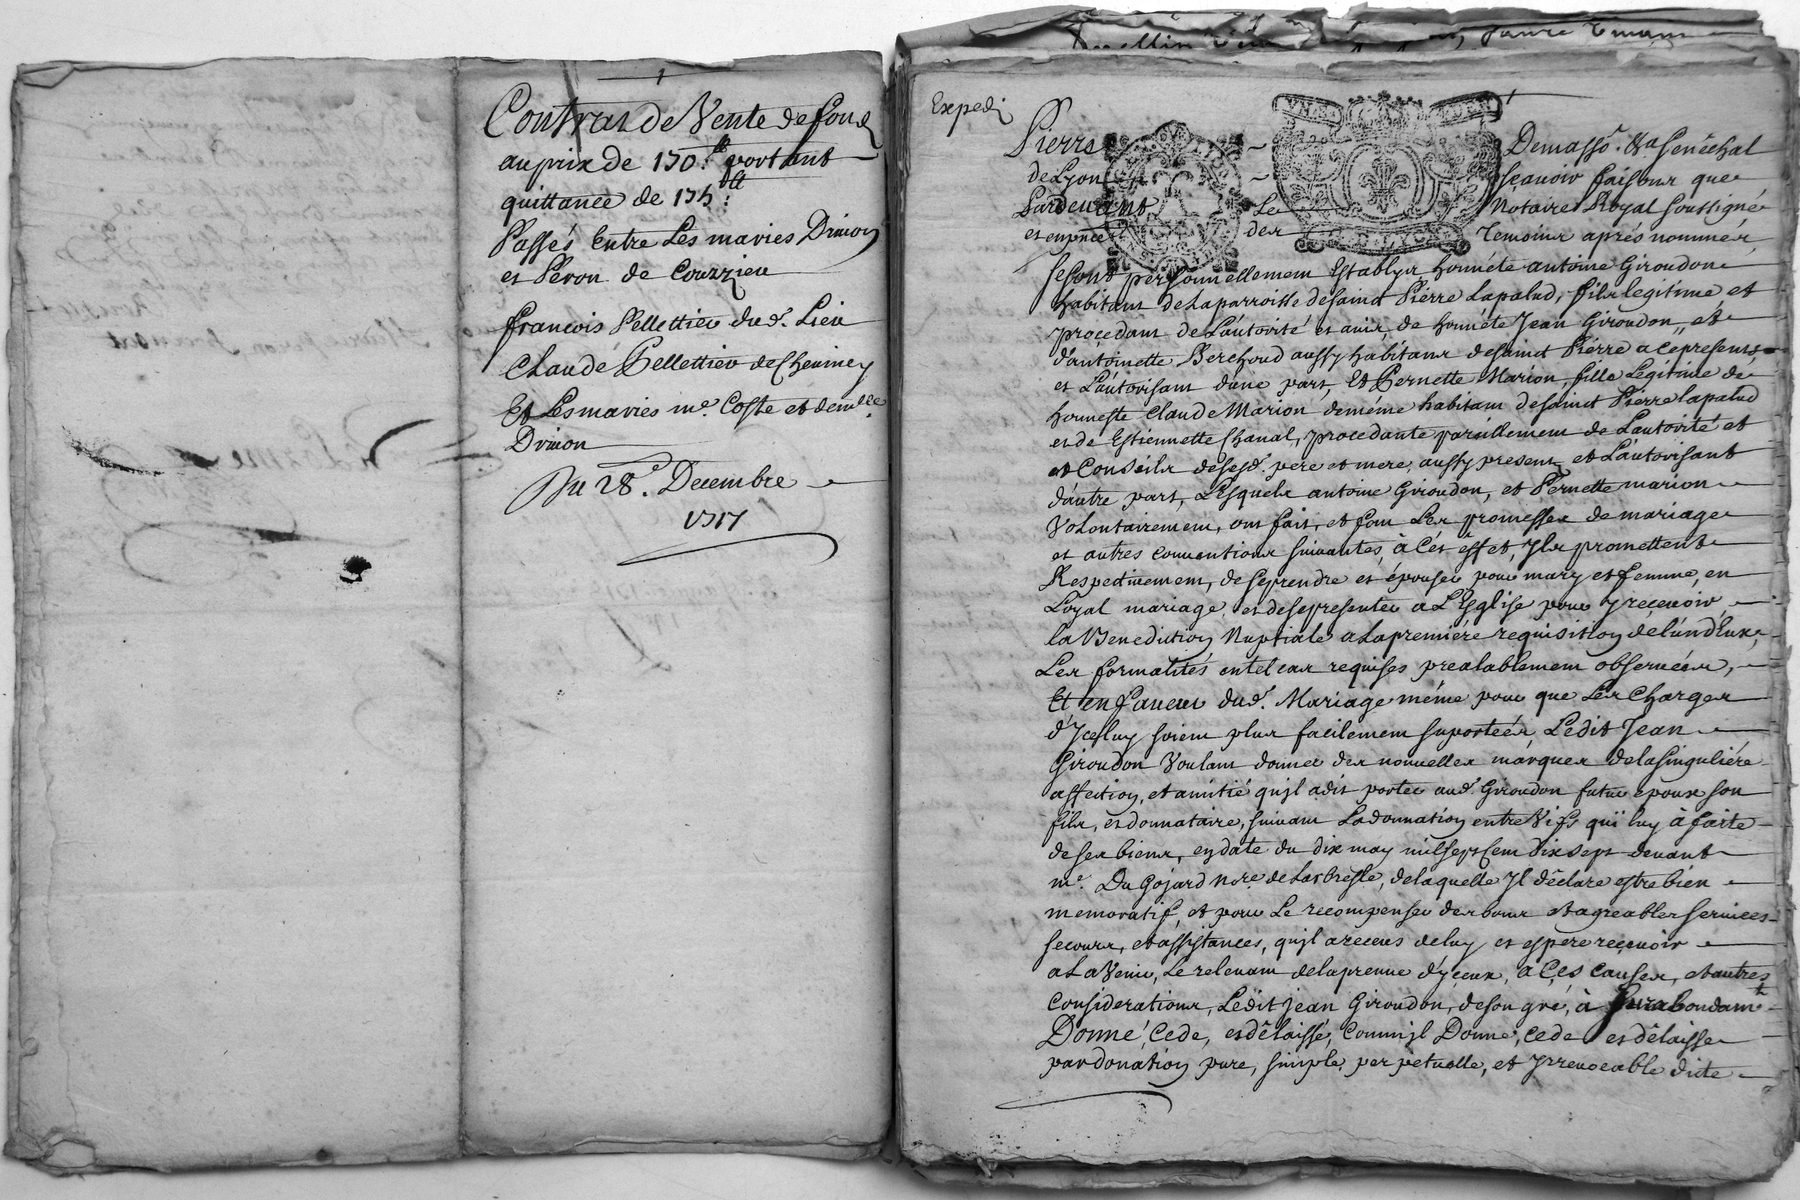 Contrat de Vente de fond
au prix de 150.ᵗᵗ portant
quittance de 175.ᵗᵗ
Passés Entre Les mariés Drivon
et Péron de Courzieu
françois Pellettier dud. Lieu
Claude Pellettier de Cheviney
Et Les mariés mᵉ. Coste et demˡˡᵉ
Drivon
Du 28.ᵉ Decembre
1717
Expedi
Pierre Demasso. &ᵃ Senéchal
de Lyon scavoir faisons que
Pardevant Le Notaire Royal soussigné
et en pncé des Temoins aprés nommés,
se sont personnellement Establys honnéte antoine Giroudon
habitant de La parroisse de saint Pierre Lapalud, fils legitime et
procedant de L'autorité et avis, de honnéte Jean Giroudon, et
d'antoinette Berchoud aussy habitans de saint Piérre a ce presents
et L'autorisant d'une part, Et Pernette Marion, fille Legitime de
honneste Claude Marion de méme habitant de saint Pierre lapalud
et de Estiennette Chanal, procedante pareillement de L'autorité et
et Conseils de sesd. pere et mere, aussy presents et L'autorisant
d'autre part, Lesquels antoine Giroudon, et Pernette marion
Volontairement, ont fait, et font Les promesses de mariage
et autres conventions suivantes, à Cét éffet, Ils promettent
Respectivement, de se prendre et épouser pour mary et femme, en
Loyal mariage, et de se presenter a L'Eglise pour y recevoir
la Benediction Nuptiale a la premiére requisition de l'un d'Eux,
Les formalités en tel cas requises prealablement observées,
Et en faveur dud. Mariage méme pour que Les Charges
d'Iceluy soient plus facilement suportées, Ledit Jean
Giroudon Voulant donner des nouvelles marques de la singuliére
affection, et amitié qu'il a dit porter aud. Giroudon futur epoux son
fils, et donnataire, suivant La donnation entre Vifs qu'il luy à faite
de ses biens, en date du dix may mil sept cent dix sept devant
mᵉ. Du Gojard Noʳᵉ de Larbresle, de laquelle Il déclare estre bien
memoratif, et pour Le recompenser des bons et agreables services
secours, et assistances, qu'il a receus de luy et espere recevoir
a La Venir, Le relevant de la preuve d'yceux, à Ces Causes, et autres
Considerations, Ledit Jean Giroudon, de son gré, à surabondamᵗ
Donné, Cede, et délaissé, Comm'il Donne, cede et délaisse
par donation pure, simple, perpetuelle, et yrrevocable dicte